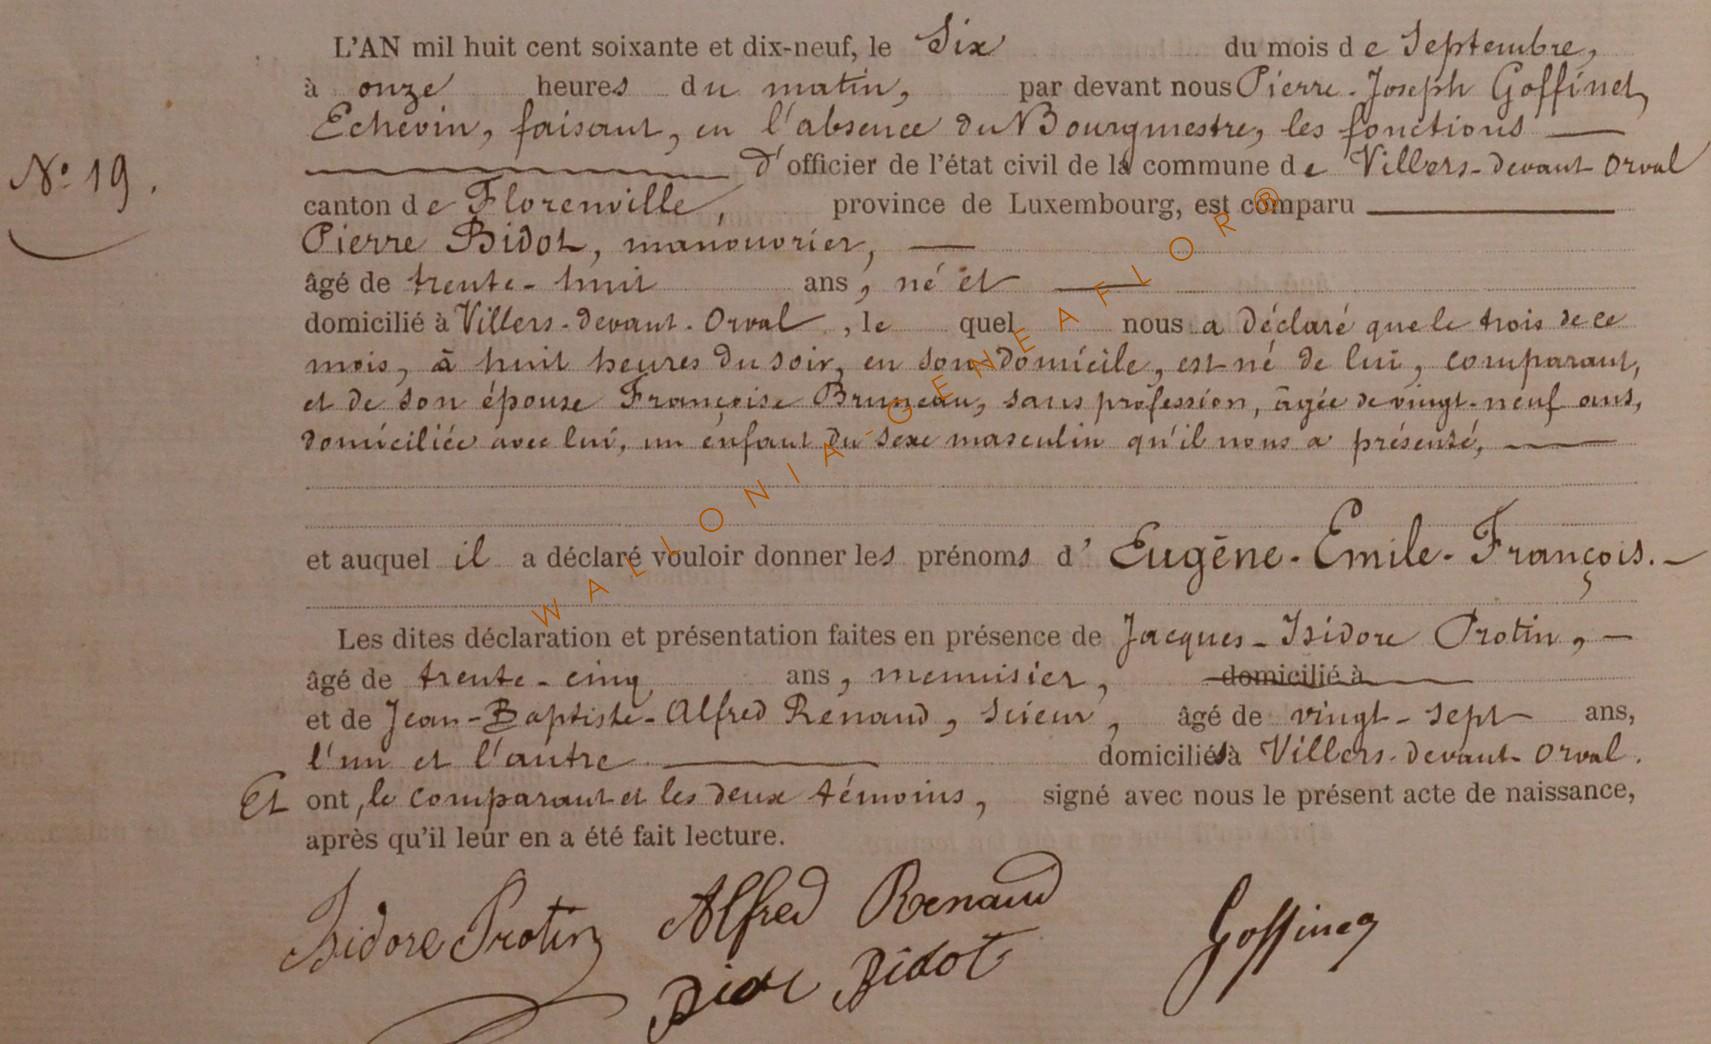 L'AN mil huit cent soixante et dix-neuf, le Six du mois de Septembre,
à onze heures du matin, par devant nous Pierre-Joseph Goffinet,
Echevin, faisant, en l'absence du Bourgmestre, les fonctions
N° 19.
d'officier de l'état civil de la commune de Villers-devant-Orval
canton de Florenville, province de Luxembourg, est comparu
Pierre Bidot, manouvrier,
âgé de trente-huit ans, né et
domicilié à Villers-devant-Orval, lequel nous a déclaré que le trois de ce
mois, à huit heures du soir, en son domicile, est né de lui, comparant,
et de son épouse Françoise Bruneau, sans profession, âgée de vingt-neuf ans,
domiciliée avec lui, un enfant du sexe masculin qu'il nous a présenté,
et auquel il a déclaré vouloir donner les prénoms d'Eugène-Emile-François.
Les dites déclaration et présentation faites en présence de Jacques-Isidore Protin,
âgé de trente-cinq ans, menuisier, domicilié à
et de Jean-Baptiste-Alfred Renaud, scieur, âgé de vingt-sept ans,
l'un et l'autre domiciliés à Villers-devant-Orval.
Et ont, le comparant et les deux témoins, signé avec nous le présent acte de naissance,
après qu'il leur en a été fait lecture.
Isidore Protin Alfred Renaud Goffinet
Bidot
WALLONIA-GENEAFLOR®